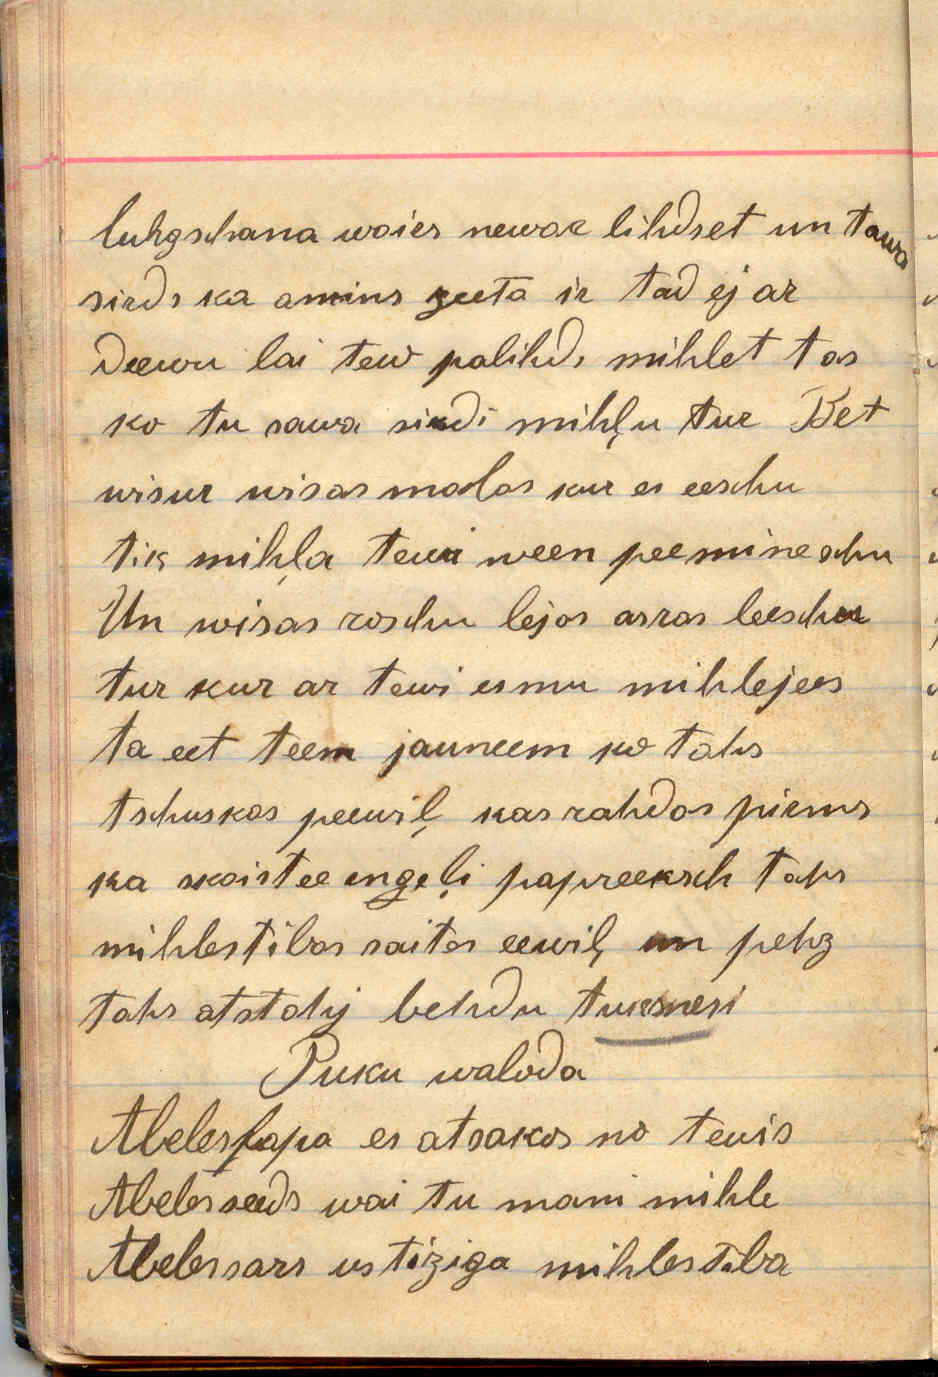 luhgschana waier newar lihdset un tawa
sirds ka amins zeeta ir tad ej ar
Deewu lai tew palihds mihlet tas
ko tu sawa sirdi mihļu tur Bet
wisur wisas malas kur es eeschu
tik mihļa tewi ween peemineschu
Un wisas roschu lejas asras leeschu
tur kur ar tewi esmu mihlejees
ta eet teem jauneem ko tahs
tschuskas peewiļ kas rahdas pirms
ka skaistee engeļi papreeksch tahs
mihlestibas saites eewiļ un pehz
tahs atstahj behdu tuksnesi
Puku waloda
Abeleslapa es atsakos no tewis
Abelesseeds wai tu mani mihle
Abelessars ustiziga mihlestiba